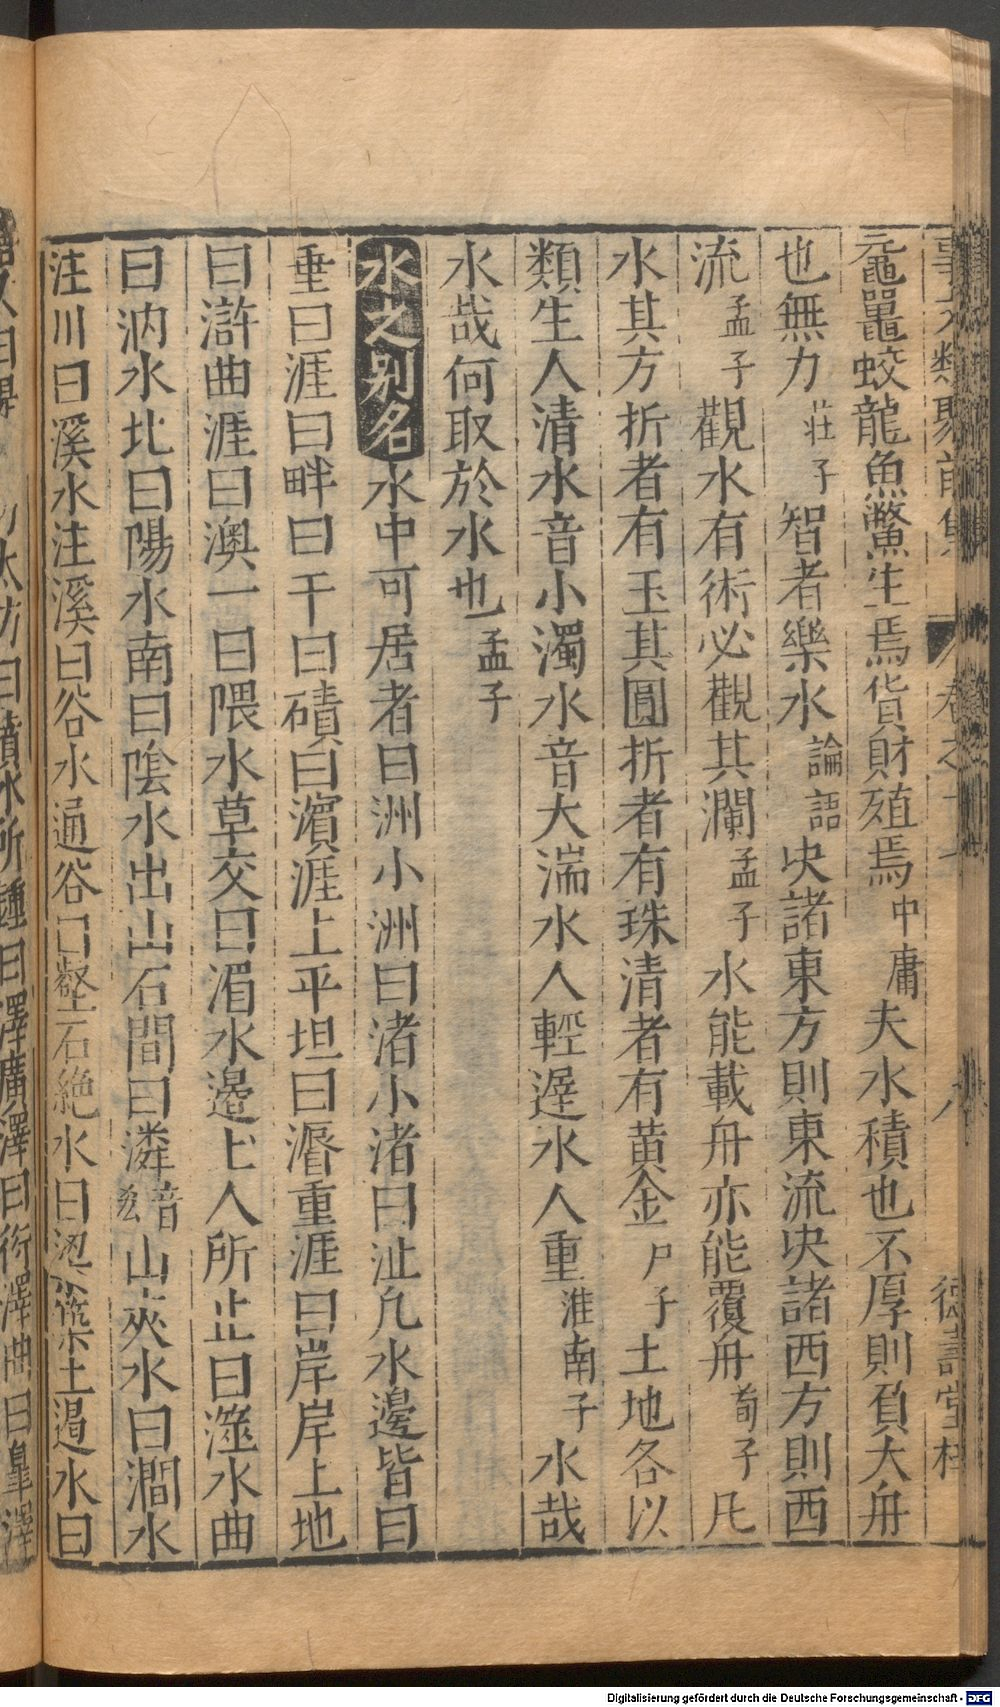 黿鼉蛟龍魚鱉生焉貨財殖焉中庸夫水積也不厚則負大舟
也無力莊子智者樂水論語決諸東方則東流決諸西方則西
流孟子觀水有術必觀其瀾孟子水能載舟亦能覆舟荀子凡
水其方折者有玉其圓折者有珠清者有黃金尸子土地各以
類生人清水音小濁水音大湍水人輕遲水人重淮南子水哉
水哉何取於水也孟子
水之别名水中可居者曰洲小洲曰渚小渚曰沚凡水邊皆曰
垂曰涯曰畔曰干曰磧曰濵涯上平坦曰漘重涯曰岸岸上地
曰滸曲涯曰澳一曰隈水草交曰湄水邉上人所止曰澨水曲
曰汭水北曰陽水南曰陰水出山石間曰潾音玄山夾水曰澗水
注川曰溪水注溪曰谷水通谷曰壑石絶水曰梁築土遏水曰
Digitalisierung gefördert durch die Deutsche Forschungsgemeinschaft - DFG